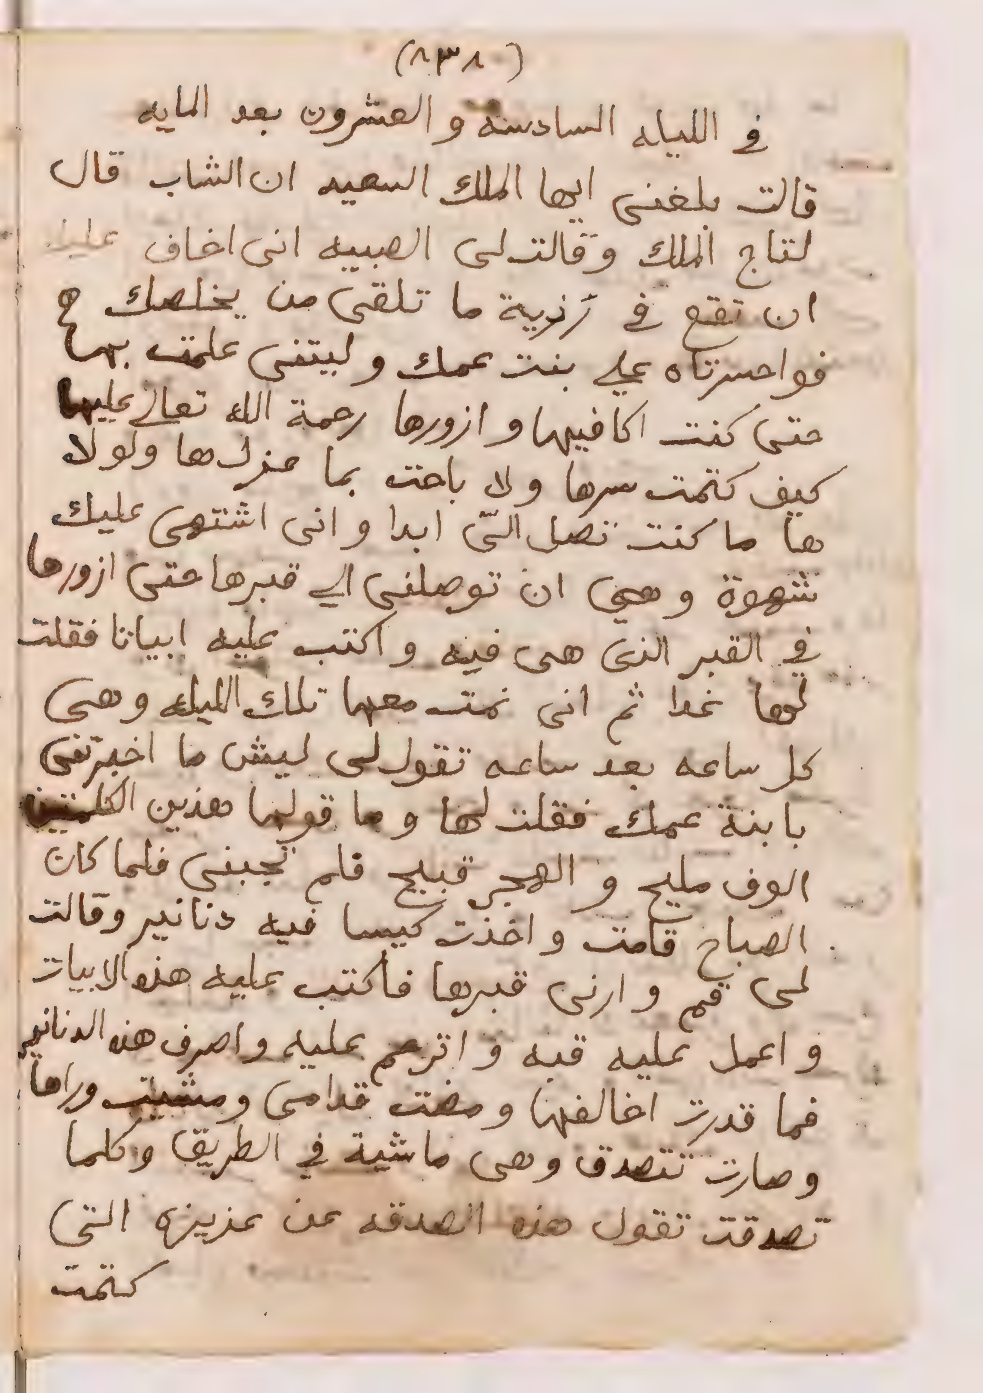 (٨٣٨)
في الليله السادسه و العشرون بعد المايه
قالت بلغنى ايها الملك السعيد ان الشاب قال
لتاج الملك وقالت لى الصبيه انى اخاف عليك
ان تقع في رزية ما تلقى من يخلصك
فواحسرتاه على بنت عمك وليتنى علمت بها
حتى كنت اكافيها و ازورها رحمة الله تعالى عليها
كيف كتمت سرها ولا باحت بما عندها ولولا
ها ما كنت تصل الىّ ابدا و انى اشتهى عليك
شهوة وهي ان توصلنى الي قبرها حتى ازورها
في القبر الذى هى فيه واكتب عليه ابياتا فقلت
لها غدا ثم انى نمت معها تلك الليله وهى
كل ساعه بعد ساعه تقول لى ليش ما اخبرتنى
بابنة عمك فقلت لها وما قولها هذين الكلمتين
الوف مليح و الهجر قبيح فلم تجبنى فلما كان
الصباح قامت واخذت كيسا فيه دنانير وقالت
لى قم و ارنى قبرها فاكتب عليه هذه الابيات
و اعمل عليه قبه و اترحم عليه واصرف هذه الدنانير
فما قدرت اخالفها ومضت قدامى ومشيت وراها
وصارت تتصدق وهى ماشية في الطريق وكلما
تصدقت تقول هذه الصدقه عن عزيزه التي
كتمت